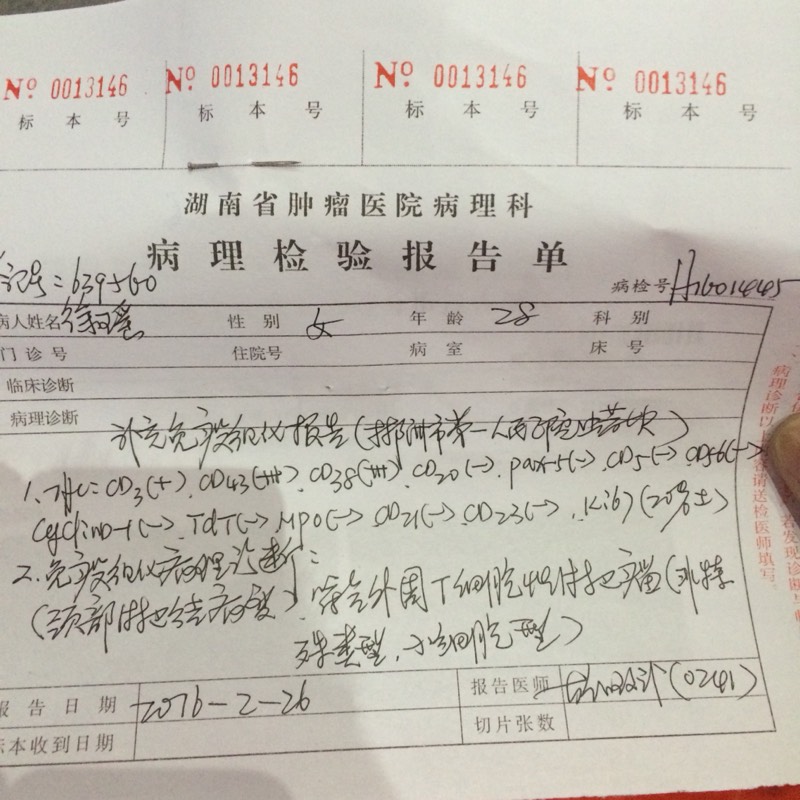 № 0013146 № 0013146 № 0013146 № 0013146
标本号 标本号 标本号 标本号
湖南省肿瘤医院病理科
病理检验报告单
记号:639560 病检号 H1601445
病人姓名 徐 性别 女 年龄 28 科别
门诊号 住院号 病室 床号
临床诊断
病理诊断
补充免疫组化报告(郴州市第一人民医院蜡块)
1、IHC: CD3(+) CD43(+++) CD38(+++) CD20(-) pax-5(-) CD5(-) CD56(-)
CyclinD-1(-) TdT(-) MPO(-) CD21(-) CD23(-) Ki67(20%±)
2、免疫组化病理诊断:
(颈部淋巴结病变) 符合外周T细胞性淋巴瘤(非特
殊类型,小细胞型)
报告日期 2016-2-26 报告医师 (0241)
标本收到日期 切片张数
病理诊断以
请送检医师填写。
若发现诊断